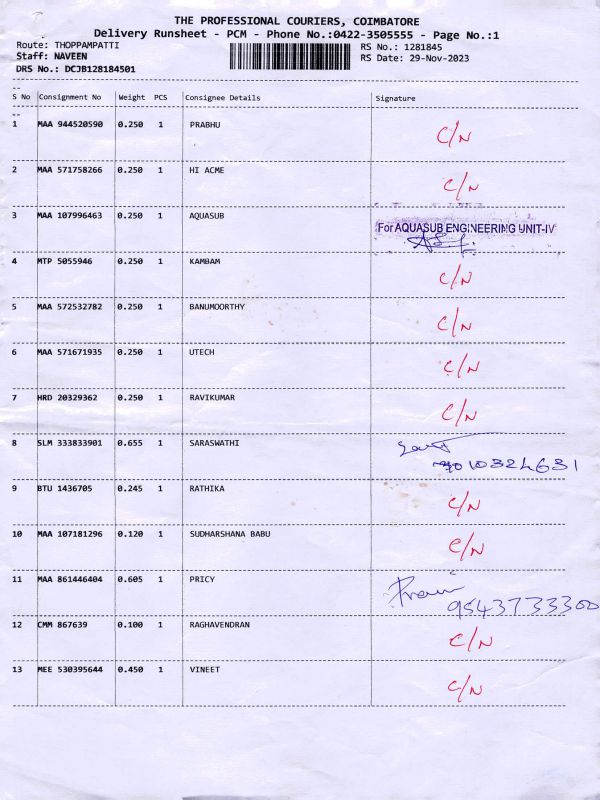 THE PROFESSIONAL COURIERS, COIMBATORE
Delivery Runsheet - PCM - Phone No.:0422-3505555 - Page No.:1
Route: THOPPAMPATTI RS No.: 1281845
Staff: NAVEEN RS Date: 29-Nov-2023
DRS No.: DCJB128184501
--
S No Consignment No Weight PCS Consignee Details Signature
--
1 MAA 944520590 0.250 1 PRABHU C/N
2 MAA 571758266 0.250 1 HI ACME C/N
3 MAA 107996463 0.250 1 AQUASUB For AQUASUB ENGINEERING UNIT-IV
4 MTP 5055946 0.250 1 KAMBAM C/N
5 MAA 572532782 0.250 1 BANUMOORTHY C/N
6 MAA 571671935 0.250 1 UTECH C/N
7 HRD 20329362 0.250 1 RAVIKUMAR C/N
8 SLM 333833901 0.655 1 SARASWATHI
9 BTU 1436705 0.245 1 RATHIKA C/N
10 MAA 107181296 0.120 1 SUDHARSHANA BABU C/N
11 MAA 861446404 0.605 1 PRICY
9543733300
12 CMM 867639 0.100 1 RAGHAVENDRAN C/N
13 MEE 530395644 0.450 1 VINEET C/N